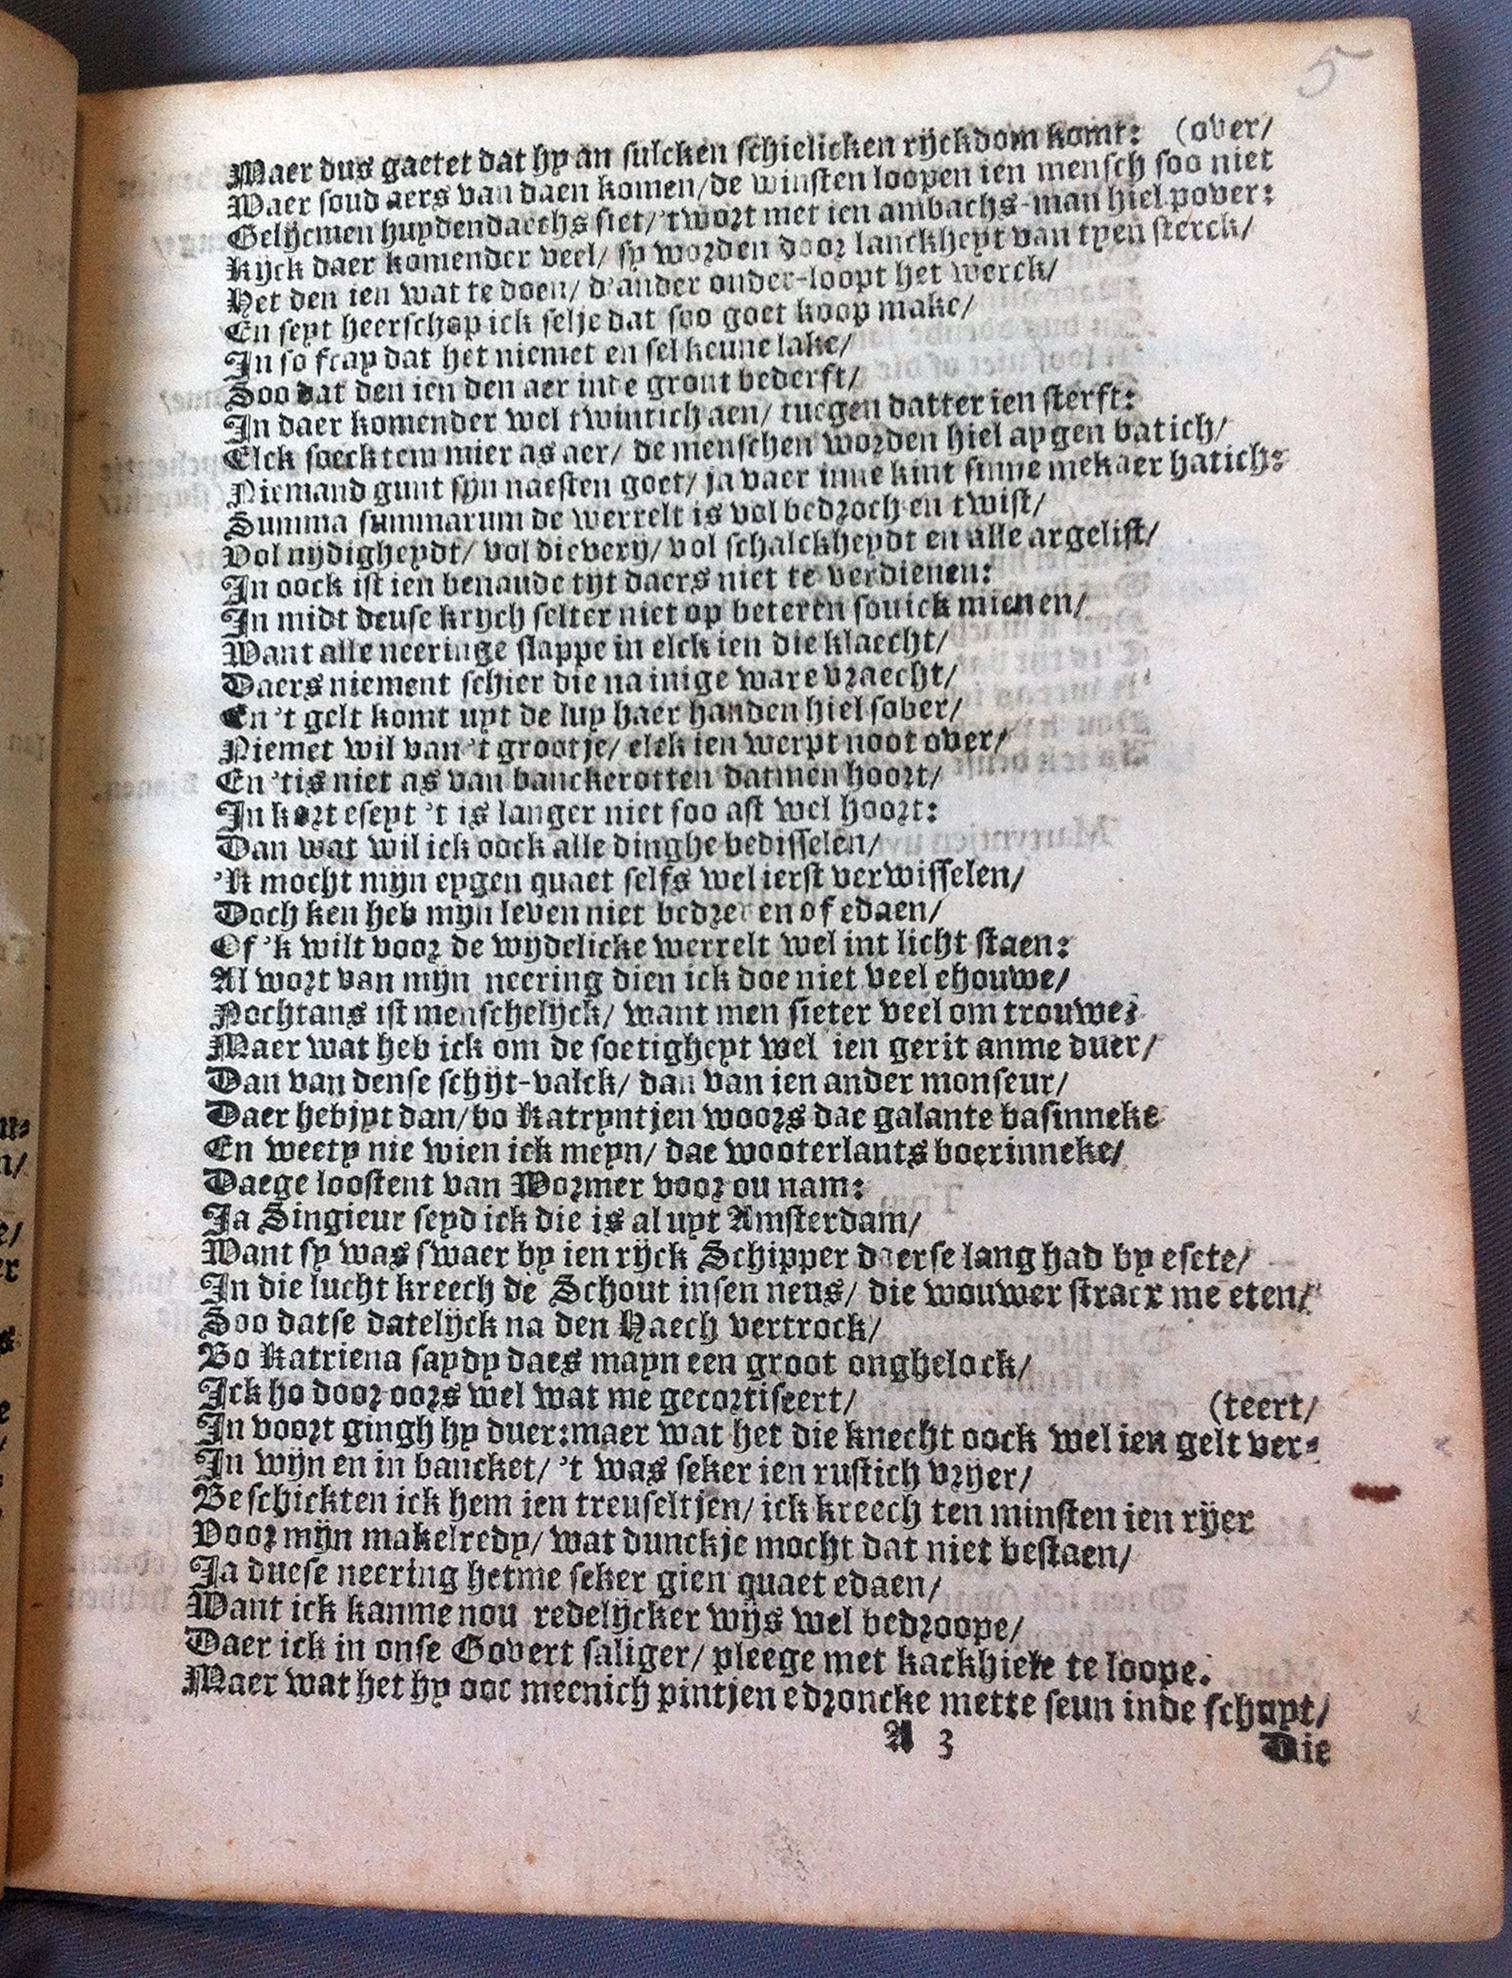 5
Maer dus gaetet dat hy an sulcken schielicken ryckdom komt: (over/
Waer soud aers van daen komen/de winsten loopen ien mensch soo niet
Gelijcmen huydendaechs siet/'twort met ien ambachs-man hiel pover:
Kijck daer komender veel/ sy worden door lanckheyt van tyen sterck/
Het den ien wat te doen/ d'ander onder-loopt het werck/
En seyt heerschop ick selje dat soo goet koop make/
In so fray dat het niemet en sel keune lake/
Soo dat den ien den aer inde gront bederft/
In daer komender wel twintich aen/ tuegen datter ien sterft:
Elck soecktem mier as aer/ de menschen worden hiel aygen batich/
Niemand gunt sijn naesten goet/ ja vaer inne kint sinne mekaer hatich:
Summa summarum de werrelt is vol bedroch en twist/
Vol nijdigheydt/ vol dievery/ vol schalckheydt en alle argelist/
In oock ist ien benaude tijt daers niet te verdienen:
In midt deuse krijch selter niet op beteren souick mienen/
Want alle neeringe slappe in elck ien die klaecht/
Daers niement schier die na inige ware vraecht/
En 't gelt komt uyt de luy haer handen hiel sober/
Niemet wil van 't grootje/ elck ien werpt noot over/
En 'tis niet as van banckerotten datmen hoort/
In kort eseyt 't is langer niet soo ast wel hoort:
Dan wat wil ick oock alle dinghe bedisselen/
'K mocht mijn eygen quaet selfs wel ierst verwisselen/
Doch ken heb mijn leven niet bedreven of edaen/
Of 'k wilt voor de wijdelicke werrelt wel int licht staen:
Al wort van mijn neering dien ick doe niet veel ehouwe/
Nochtans ist menschelijck/ want men sieter veel om trouwe;
Maer wat heb ick om de soetigheyt wel ien gerit anme duer/
Dan van dense schijt-valck/ dan van ien ander monseur/
Daer hebjyt dan/bo Katryntjen woors dae galante basinneke
En weety nie wien ick meyn/ dae wooterlants boerinneke/
Daege loostent van Wormer voor ou nam:
Ja Singieur seyd ick die is al uyt Amsterdam/
Want sy was swaer by ien rijck Schipper daerse lang had by esete/
In die lucht kreech de Schout insen neus/ die wouwer stracx me eten/
Soo datse datelijck na den Haech vertrock/
Bo Katriena saydy daes mayn een groot onghelock/
Ick ho door oors wel wat me gecortiseert/ (teert/
In voort gingh hy duer:maer wat het die knecht oock wel ien gelt ver-
In wijn en in bancket/ 't was seker ien rustich vrijer/
Beschickten ick hem ien treuseltjen/ ick kreech ten minsten ien rijer
Voor mijn makelredy/ wat dunckje mocht dat niet bestaen/
Ja duese neering hetme seker gien quaet edaen/
Want ick kanme nou redelijcker wijs wel bedroope/
Daer ick in onse Govert saliger/ pleege met kackhiele te loope.
Maer wat het hy ooc mecnich pintjen edroncke mette seun inde schuyt/
A 3 Die